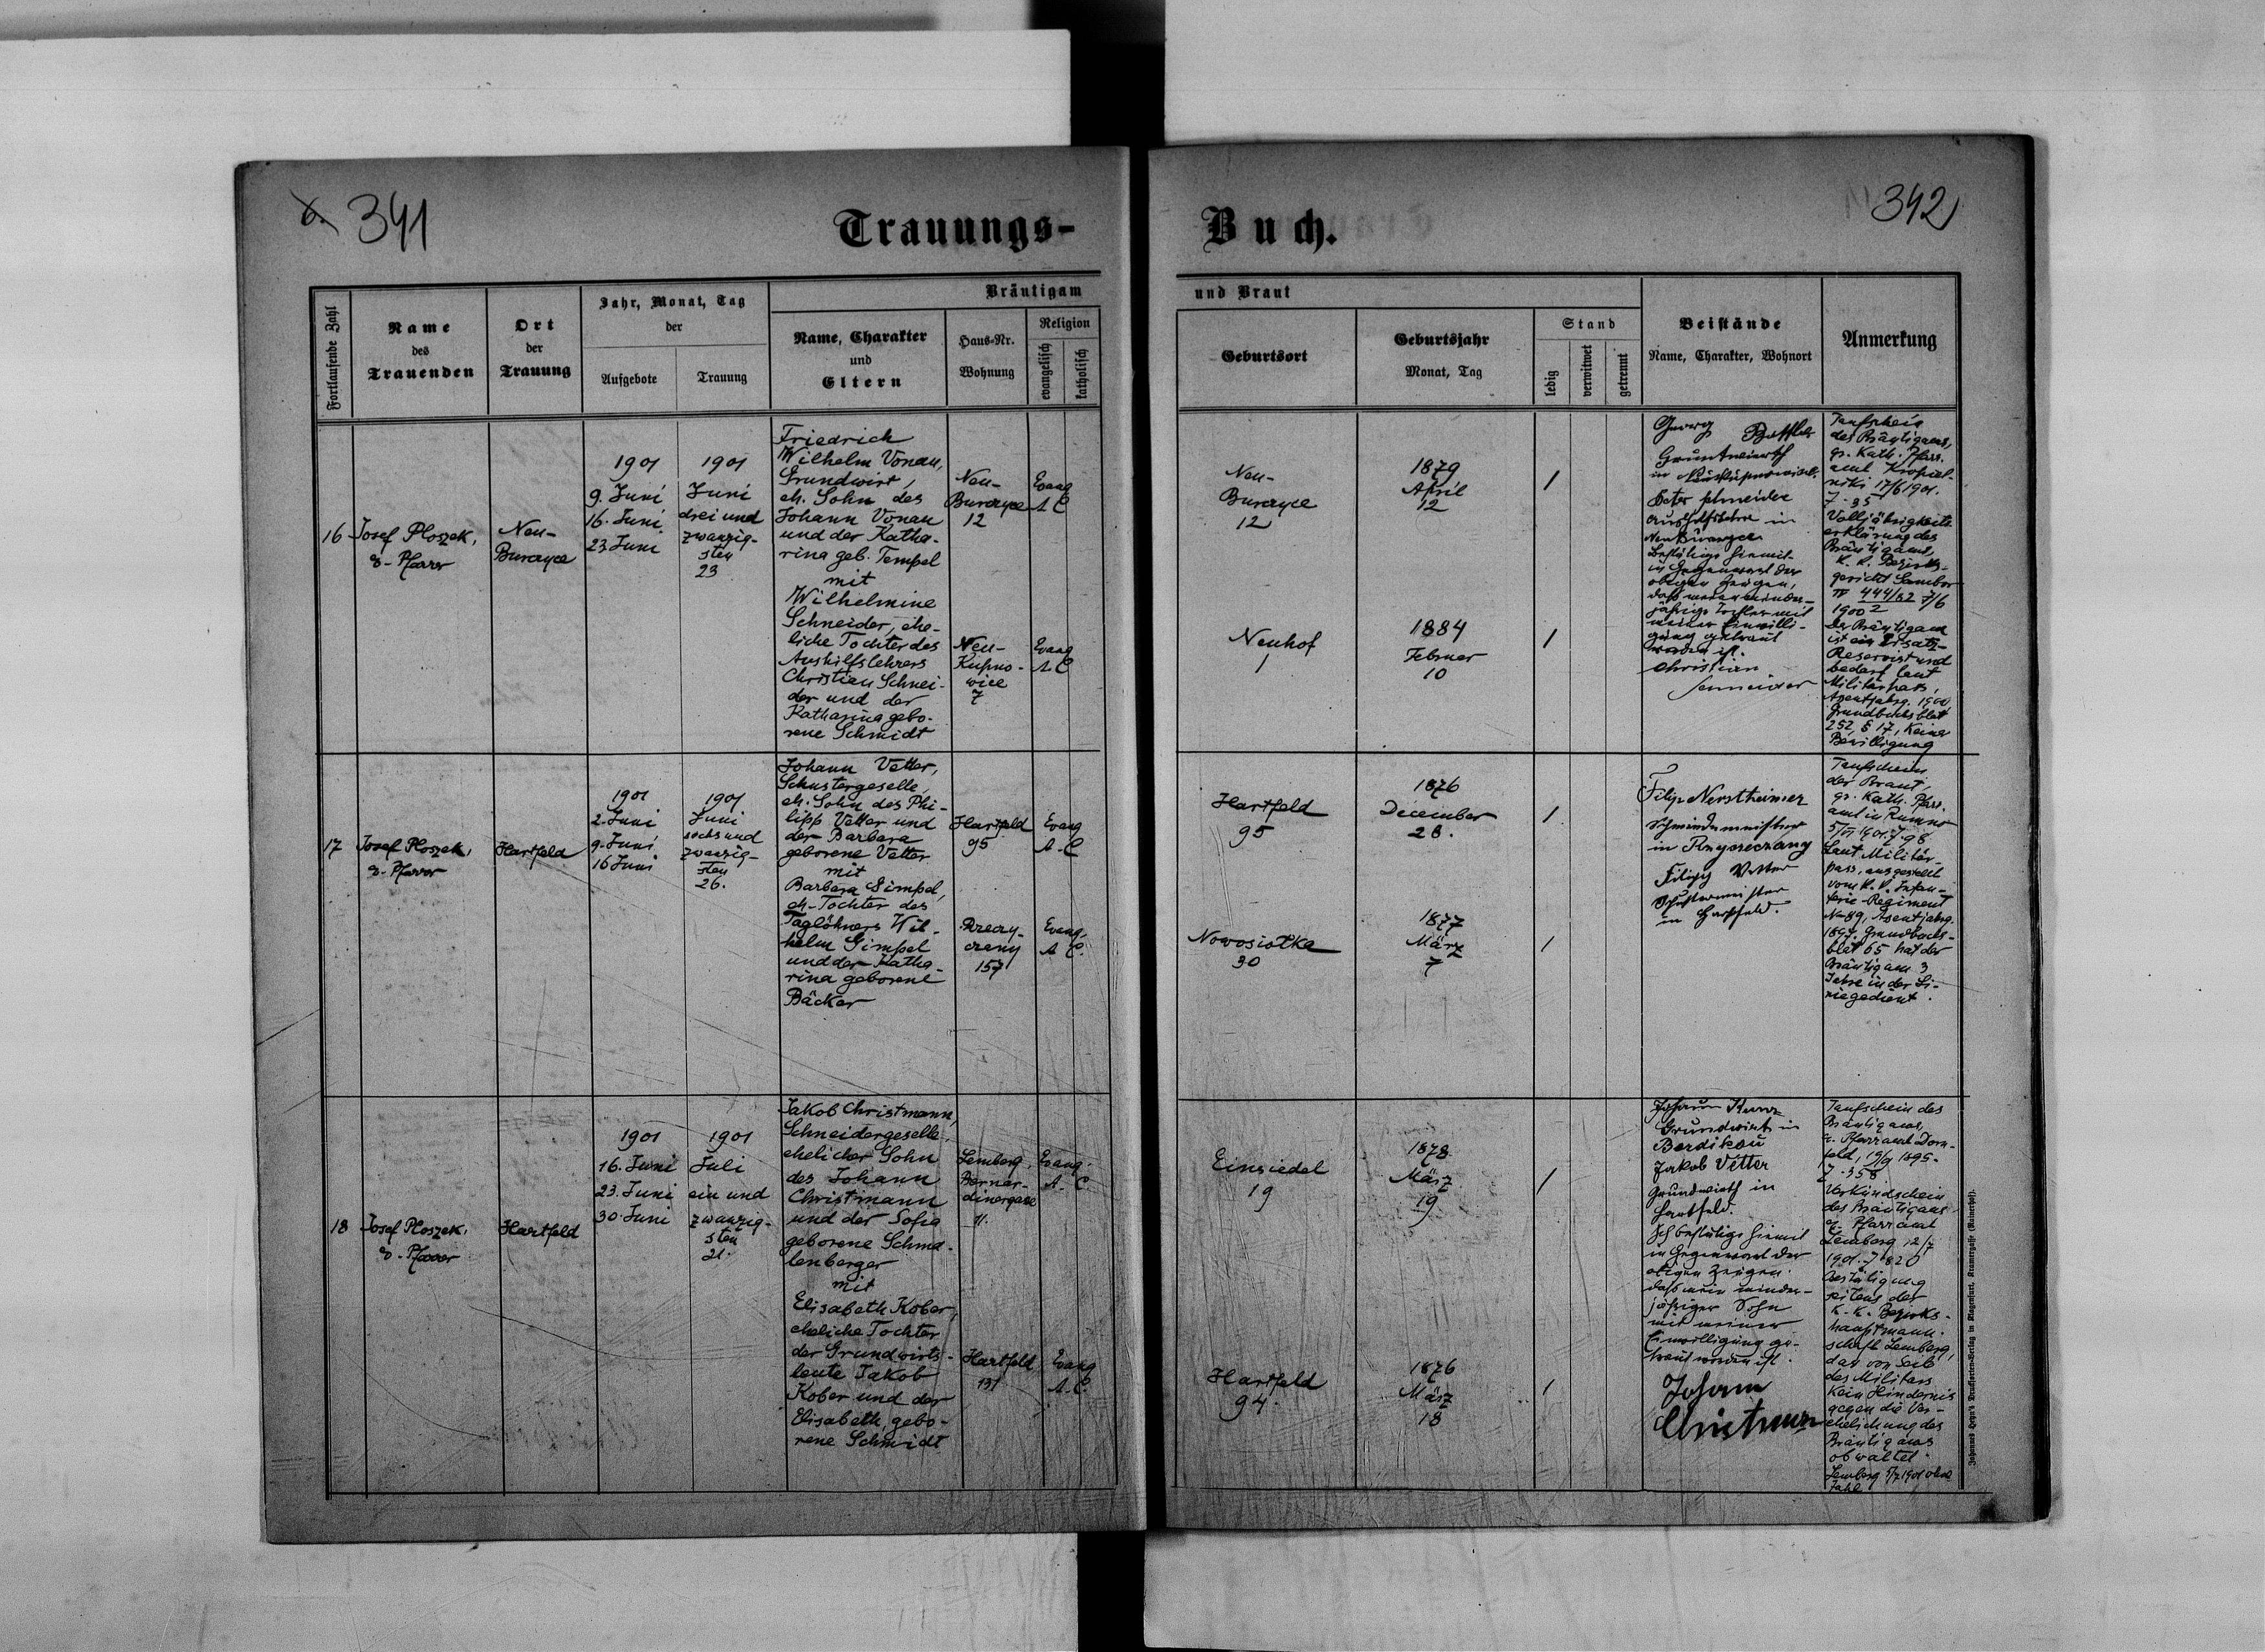 6. 341
Trauungs-
Buch.
342
Fortlaufende Zahl
Name
des
Trauenden
Ort
der
Trauung
Jahr, Monat, Tag
der
Aufgebote
Trauung
Bräutigam
Name, Charakter
und
Eltern
Haus-Nr.
Wohnung
Religion
evangelisch
katholisch
und Braut
Geburtsort
Geburtsjahr
Monat, Tag
Stand
ledig
verwitwet
getrennt
Beistände
Name, Charakter, Wohnort
Anmerkung
16
Josef Ploszek,
ev. Pfarrer
Neu-
Burczyce
1901
9. Juni
16. Juni
23 Juni
1901
Juni
drei und
zwanzig-
sten
23
Friedrich
Wilhelm Vonau,
Grundwirt,
eh. Sohn des
Johann Vonau
und der Katha-
rina geb. Tempel
mit
Wilhelmine
Schneider, ehe-
liche Tochter des
Aushilfslehrers
Christian Schnei-
der und der
Katharina gebo-
rene Schmidt
Neu-
Burczyce
12
Evang
A C
Neu-
Kupno-
wice
7
Evang
A C
Neu-
Burczyce
12
1879
April
12
/
Neuhof
1
1884
Februar
10
/
Georg
Grundwirth
in
Peter Schneider
Aushilfslehrer in
Neu Burczyce
Bestätige hiemit
in Gegenwart der
obigen Zeugen,
daß meine minder-
jährige Tochter mit
meiner Einwilli-
gung getraut
worden ist.
Christian
Schneider
Taufschein
des Bräutigams,
gr. Kath. Pfarr-
amt
17/6 1901.
Z. 35
Volljährigkeits
erklärung des
Bräutigams,
K. k. Bezirks-
gericht Sambor
IV 444/82 7/6
1900 2
Der Bräutigam
ist ein Ersatz-
Reservist und
bedarf laut
Militärpass,
Assentjahrg. 1900,
Grundbuchsblat
252, § 17, Keiner
Bewilligung
17
Josef Ploszek,
ev. Pfarrer
Hartfeld
1901
2. Juni
9. Juni
16 Juni
1901
Juni
sechs und
zwanzig-
sten
26.
Johann Vetter,
Schustergeselle,
eh. Sohn des Phi-
lipp Vetter und
der Barbara
geborene Vetter
mit
Barbara Gimpel,
eh. Tochter des
Taglöhners Wil-
helm Gimpel
und der Katha-
rina geborene
Bäcker
Hartfeld
95
Evang
A. C
Rzeczy-
czany
157
Evang.
A C.
Hartfeld
95
1876
December
28.
/
Nowosiotka
30
1877
März
7
/
Filip Nerstheimer
Schmiedemeister
in Rzyczeczany
Filipp Vetter
Schustermeister
in Hartfeld.
Taufschein
der Braut,
gr. Kath. Pfarr-
amt in Rumno
5/VI 1901. Z. 98
Laut Militär-
pass, ausgestellt
vom K. k. Infan-
terie-Regiment
No 89, Assentjahrg.
1897, Grundbuchs-
blat 65 hat der
Bräutigam 3
Jahre in der Li-
nie gedient.
18
Josef Ploszek,
ev. Pfarrer
Hartfeld
1901
16. Juni
23. Juni
30. Juni
1901
Juli
ein und
zwanzig-
sten
21.
Jakob Christmann,
Schneidergeselle,
ehelicher Sohn
des Johann
Christmann
und der Sofia
geborene Schma-
lenberger
mit
Elisabeth Kober,
eheliche Tochter
der Grundwirts-
leute Jakob
Kober und der
Elisabeth, gebo-
rene Schmidt
Lemberg,
Bernar-
dinergasse
11.
Evang.
A. C.
Hartfeld
131
Evang
A. C.
Einsiedel
19
1878
März
19
/
Hartfeld
94.
1876
März
18
/
Johann
Grundwirt in
Berdikau
Jakob Vetter
Grundwirth in
Hartfeld.
Ich bestätige hiemit
in Gegenwart der
obigen Zeugen,
daß mein minder-
jähriger Sohn
mit meiner
Einwilligung ge-
traut worden ist.
Johann
Christmann
Taufschein des
Bräutigams,
ev. Pfarramt Dorn-
feld, 19/9 1895.
Z. 358
Verkündschein
des Bräutigams
ev. Pfarramt
Lemberg, 12/7
1901. Z 820
Bestätigung
seitens der
K. K. Bezirks-
hauptmann-
schaft Lemberg,
das von Seite
des Militärs
Kein Hindernis
gegen die Ver-
ehelichung des
Bräutigams
obwaltet.
Lemberg 5/7 1901 ohne
Zahl